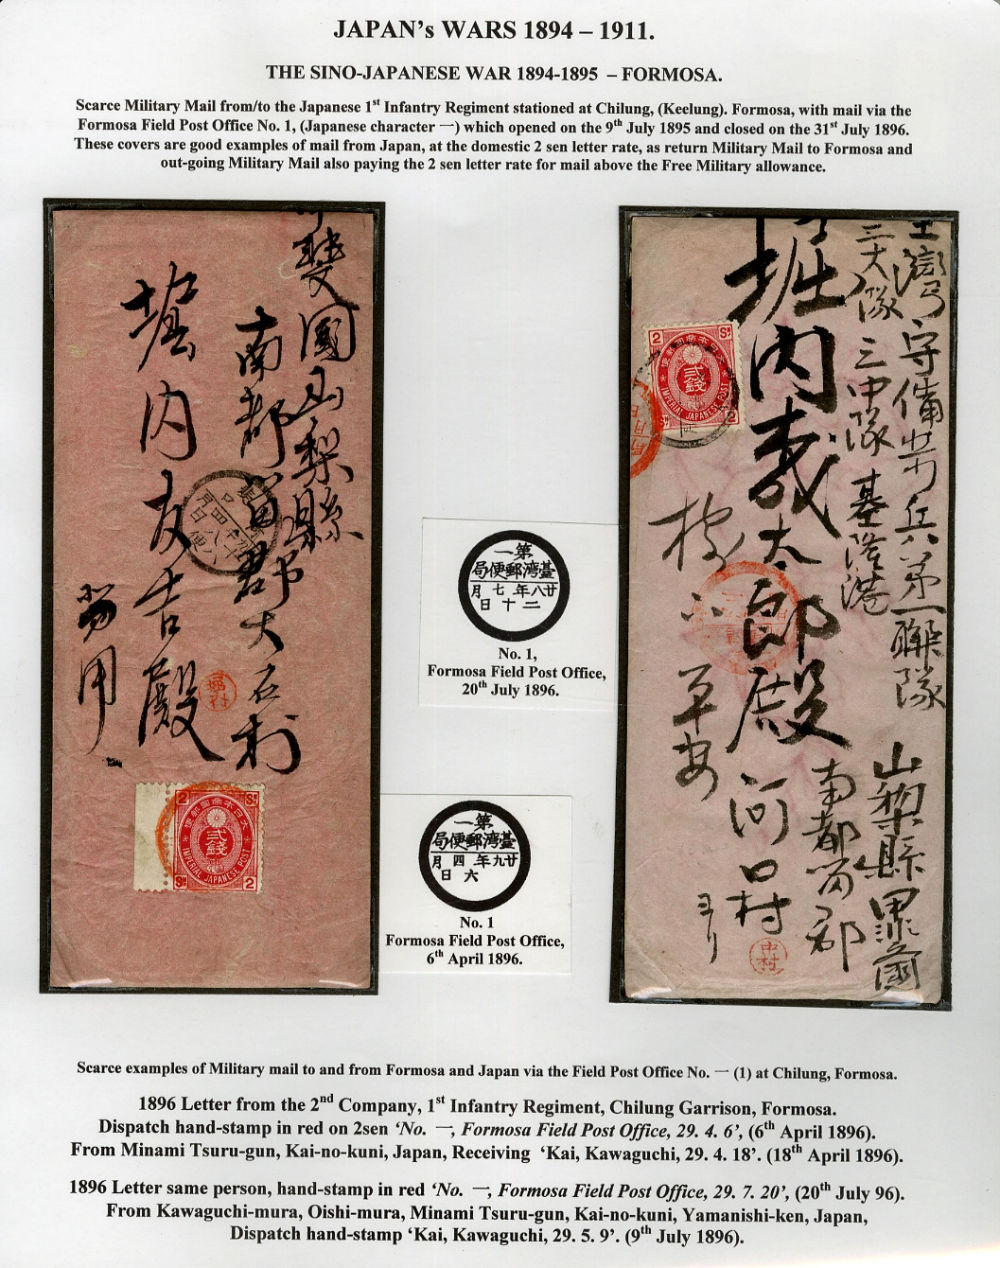 JAPAN's WARS 1894 – 1911.
THE SINO-JAPANESE WAR 1894-1895 – FORMOSA.
Scarce Military Mail from/to the Japanese 1st Infantry Regiment stationed at Chilung, (Keelung). Formosa, with mail via the
Formosa Field Post Office No. 1, (Japanese character 一) which opened on the 9th July 1895 and closed on the 31st July 1896.
These covers are good examples of mail from Japan, at the domestic 2 sen letter rate, as return Military Mail to Formosa and
out-going Military Mail also paying the 2 sen letter rate for mail above the Free Military allowance.
斐國山梨縣
南都留郡大石村
堀内友吉殿
大日本帝國郵便
2 Sn
貳錢
IMPERIAL JAPANESE POST
Sn 2
第一
臺湾郵便局
廿八年七月
二十日
No. 1,
Formosa Field Post Office,
20th July 1896.
第一
臺湾郵便局
廿九年四月
六日
No. 1
Formosa Field Post Office,
6th April 1896.
灣守備歩兵第一聯隊
三大隊三中隊基隆港
堀内
太郎殿
大日本帝國郵便
2 Sn
貳錢
IMPERIAL JAPANESE POST
Sn 2
平安
山梨縣甲斐國
南都留郡
河口村
ヨリ
中村
Scarce examples of Military mail to and from Formosa and Japan via the Field Post Office No. 一 (1) at Chilung, Formosa.
1896 Letter from the 2nd Company, 1st Infantry Regiment, Chilung Garrison, Formosa.
Dispatch hand-stamp in red on 2sen ‘No. 一, Formosa Field Post Office, 29. 4. 6’, (6th April 1896).
From Minami Tsuru-gun, Kai-no-kuni, Japan, Receiving ‘Kai, Kawaguchi, 29. 4. 18’. (18th April 1896).
1896 Letter same person, hand-stamp in red ‘No. 一, Formosa Field Post Office, 29. 7. 20’, (20th July 96).
From Kawaguchi-mura, Oishi-mura, Minami Tsuru-gun, Kai-no-kuni, Yamanishi-ken, Japan,
Dispatch hand-stamp ‘Kai, Kawaguchi, 29. 5. 9’. (9th July 1896).